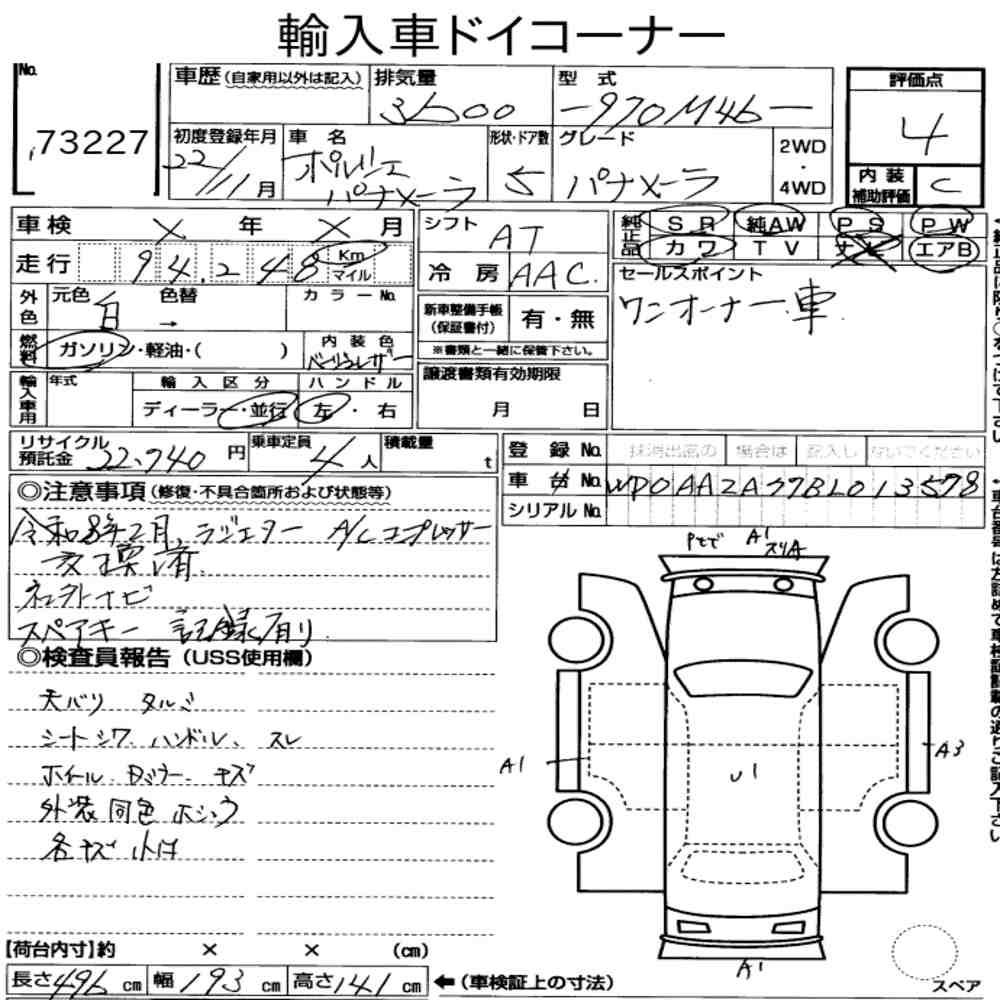 輸入車ドイコーナー
No.
73227
車歴(自家用以外は記入)
排気量
3600
型 式
-970M46-
評価点
4
内装補助評価
C
初度登録年月
22/11月
車 名
ポルシェ
パナメーラ
形状・ドア数
5
グレード
パナメーラ
2WD
・
4WD
車検 × 年 × 月
走行 94,248 Km マイル
シフト
AT
冷 房
AAC.
純正品
SR 純AW PS PW
カワ TV ナビ エアB
セールスポイント
ワンオーナー車
外色
元色
白
色替
→
カラーNo.
燃料
ガソリン・軽油・( )
内装色
新車整備手帳
(保証書付)
有・無
※書類と一緒に保管下さい。
輸入車用
年式
輸入区分
ディーラー・並行
ハンドル
左・右
譲渡書類有効期限
月 日
リサイクル
預託金
22,940円
乗車定員
4人
積載量
t
登録No.
抹消出高の 場合は 記入し ないでください
車台No.
WP0AA2A77BL013578
シリアルNo.
◎注意事項(修復・不具合箇所および状態等)
令和8年2月,ラジエター A/Cコプレッサー
交換済.
スペアキー 記録有り.
◎検査員報告(USS使用欄)
天バリ タルミ
シートシワ、ハンドル、スレ
ホイール、Dミラー、キズ
外装同色ホシュウ
各キズ小凹
A1
A1
A3
U1
A1
【荷台内寸】約 × × (cm)
長さ496cm 幅193cm 高さ141cm ←(車検証上の寸法)
スペア